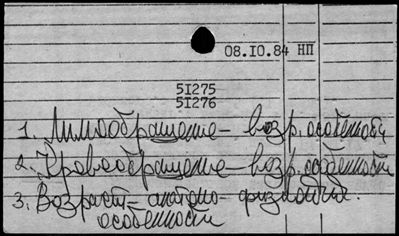 08.10.84 НП
51275
51276
1. Лимфообращение – возр. особенности
2. Кровообращение – возр. особенности
3. Возраст – анатомо-физиол.
особенности